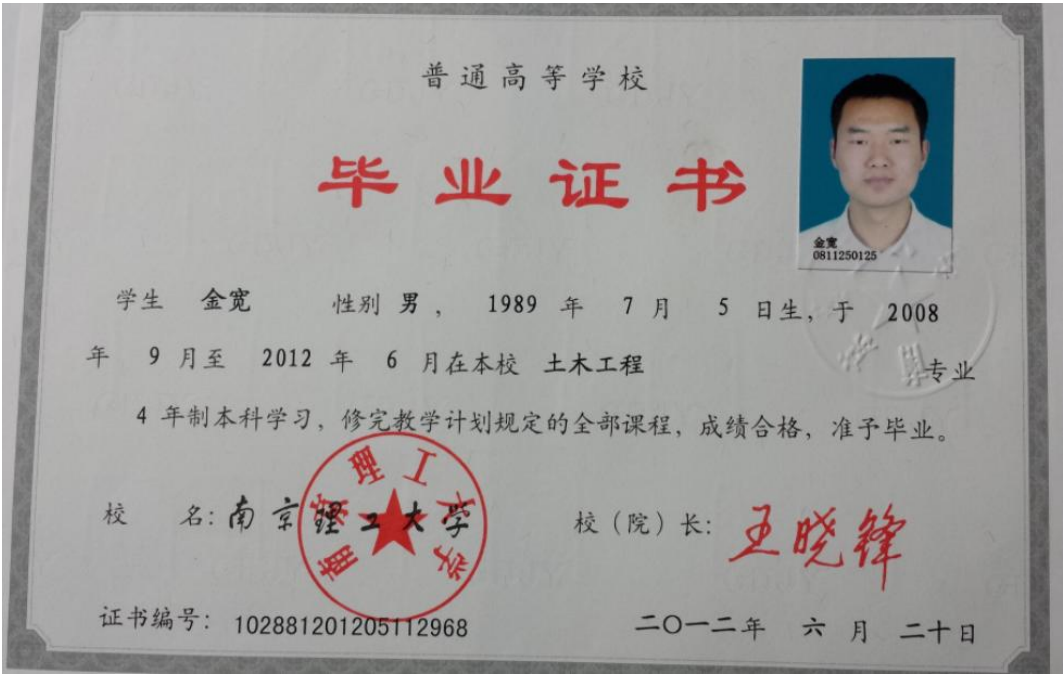 普通高等学校
毕业证书
金宽
0811250125
学生 金宽 性别 男， 1989 年 7 月 5 日生，于 2008
年 9 月至 2012 年 6 月在本校 土木工程 专业
4 年制本科学习，修完教学计划规定的全部课程，成绩合格，准予毕业。
校 名：南京理工大学
校（院）长：王晓锋
南京理工大学
证书编号：102881201205112968
二〇一二年 六 月 二十日